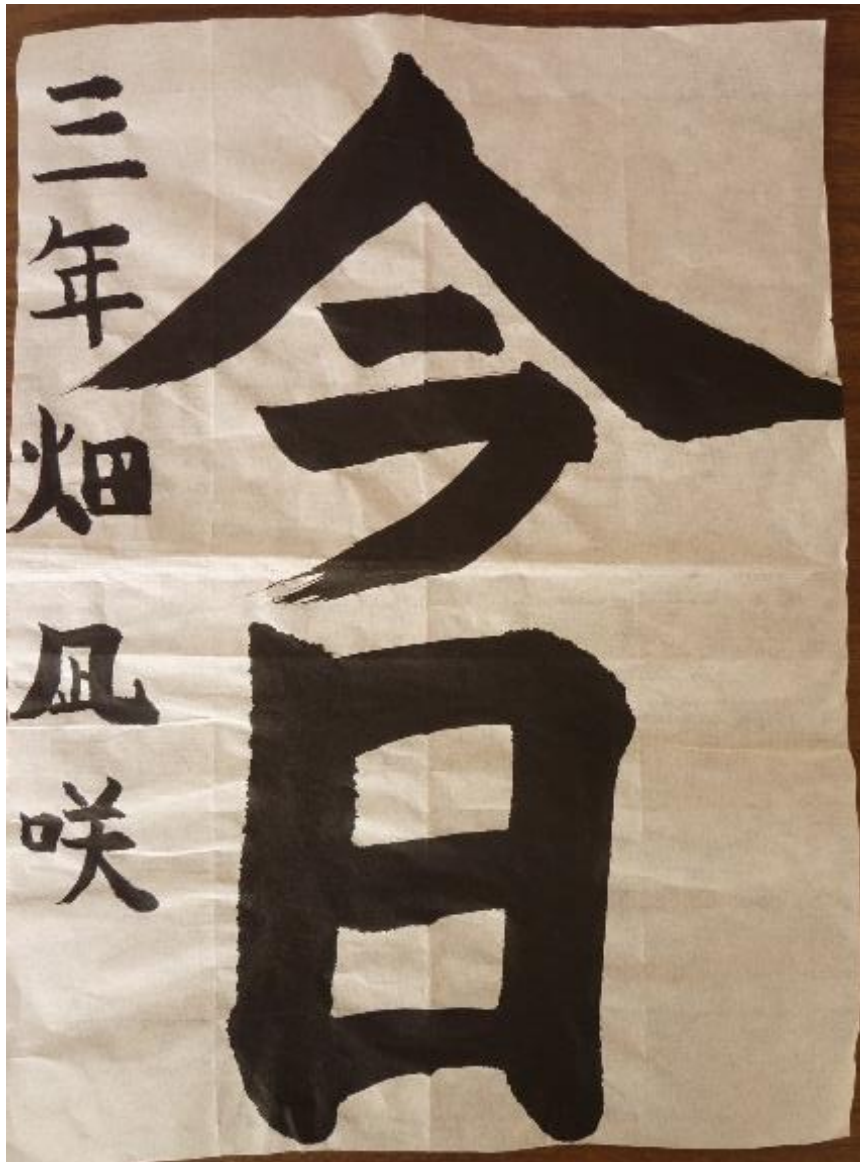 今日
三年 畑 凪咲